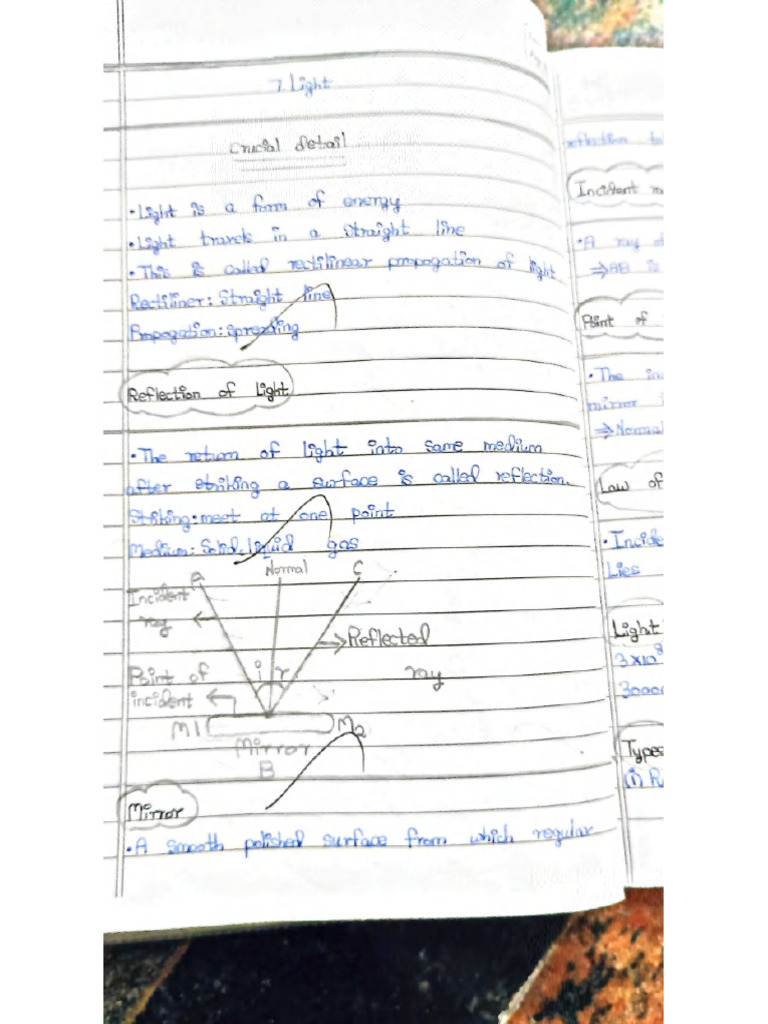 7. Light
Crucial detail
• Light is a form of energy
• Light travels in a straight line
• This is called rectilinear propogation of light
Rectiliner: Straight line
Propogation: spreading
Reflection of Light
• The return of light into same medium
after striking a surface is called reflection.
Striking: meet at one point
Medium: Solid, liquid gas
A Normal C
Incident
ray
Reflected
ray
i r
Point of
incident
M1 M2
Mirror
B
Mirror
• A smooth polished surface from which regular
reflection
Incident
• A ray
⇒ AB is
Point of
• The
mirror
⇒ Normal
Law of
• Incide
Lies
Light
3×10⁸
3000
Types
(i) R